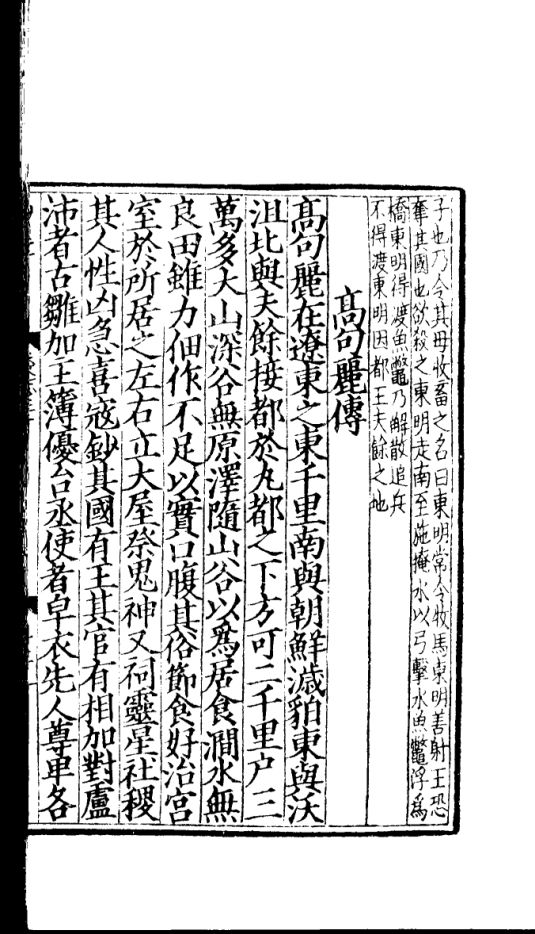 子也乃令其母收畜之名曰東明常令牧馬東明善射王恐
奪其國也欲殺之東明走南至施掩水以弓擊水魚鼈浮爲
橋東明得渡魚鼈乃解散追兵
不得渡東明因都王夫餘之地
高句麗傳
高句麗在遼東之東千里南與朝鮮濊貊東與沃
沮北與夫餘接都於丸都之下方可二千里户三
萬多大山深谷無原澤隨山谷以爲居食澗水無
良田雖力佃作不足以實口腹其俗節食好治宮
室於所居之左右立大屋祭鬼神又祠靈星社稷
其人性凶急喜寇鈔其國有王其官有相加對盧
沛者古雛加主簿優台丞使者皁衣先人尊卑各